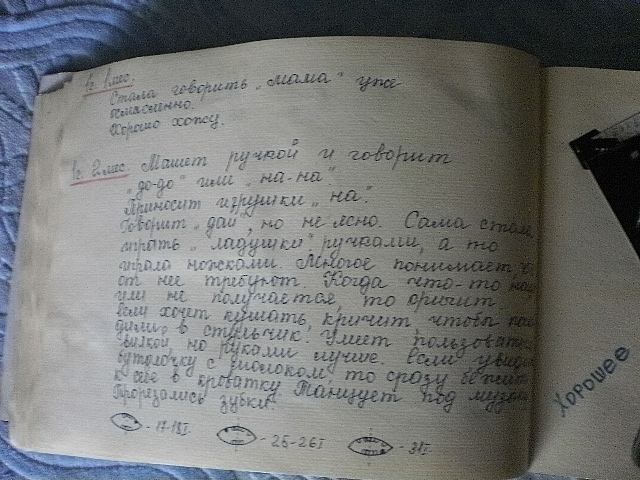 1г. 1 мес.
Стала говорить „мама" уже
осмысленно.
Хорошо хожу.
1г. 2 мес. Машет ручкой и говорит
„до-до" или „на-на".
Приносит игрушки „на".
Говорит „дай", но не ясно. Сама стала
играть „ладушки" ручками, а то
играла ножками. Многое понимает
от нее требуют. Когда что-то
или не получается, то
если хочет кушать, кричит, чтобы
в стульчик. Умеет
вилкой, но руками лучше. Если
бутылочку с молоком, то сразу
к себе в кроватку. Танцует под
Прорезались зубки.
- 17-18I
- 25-26I
- 31I
Хорошее